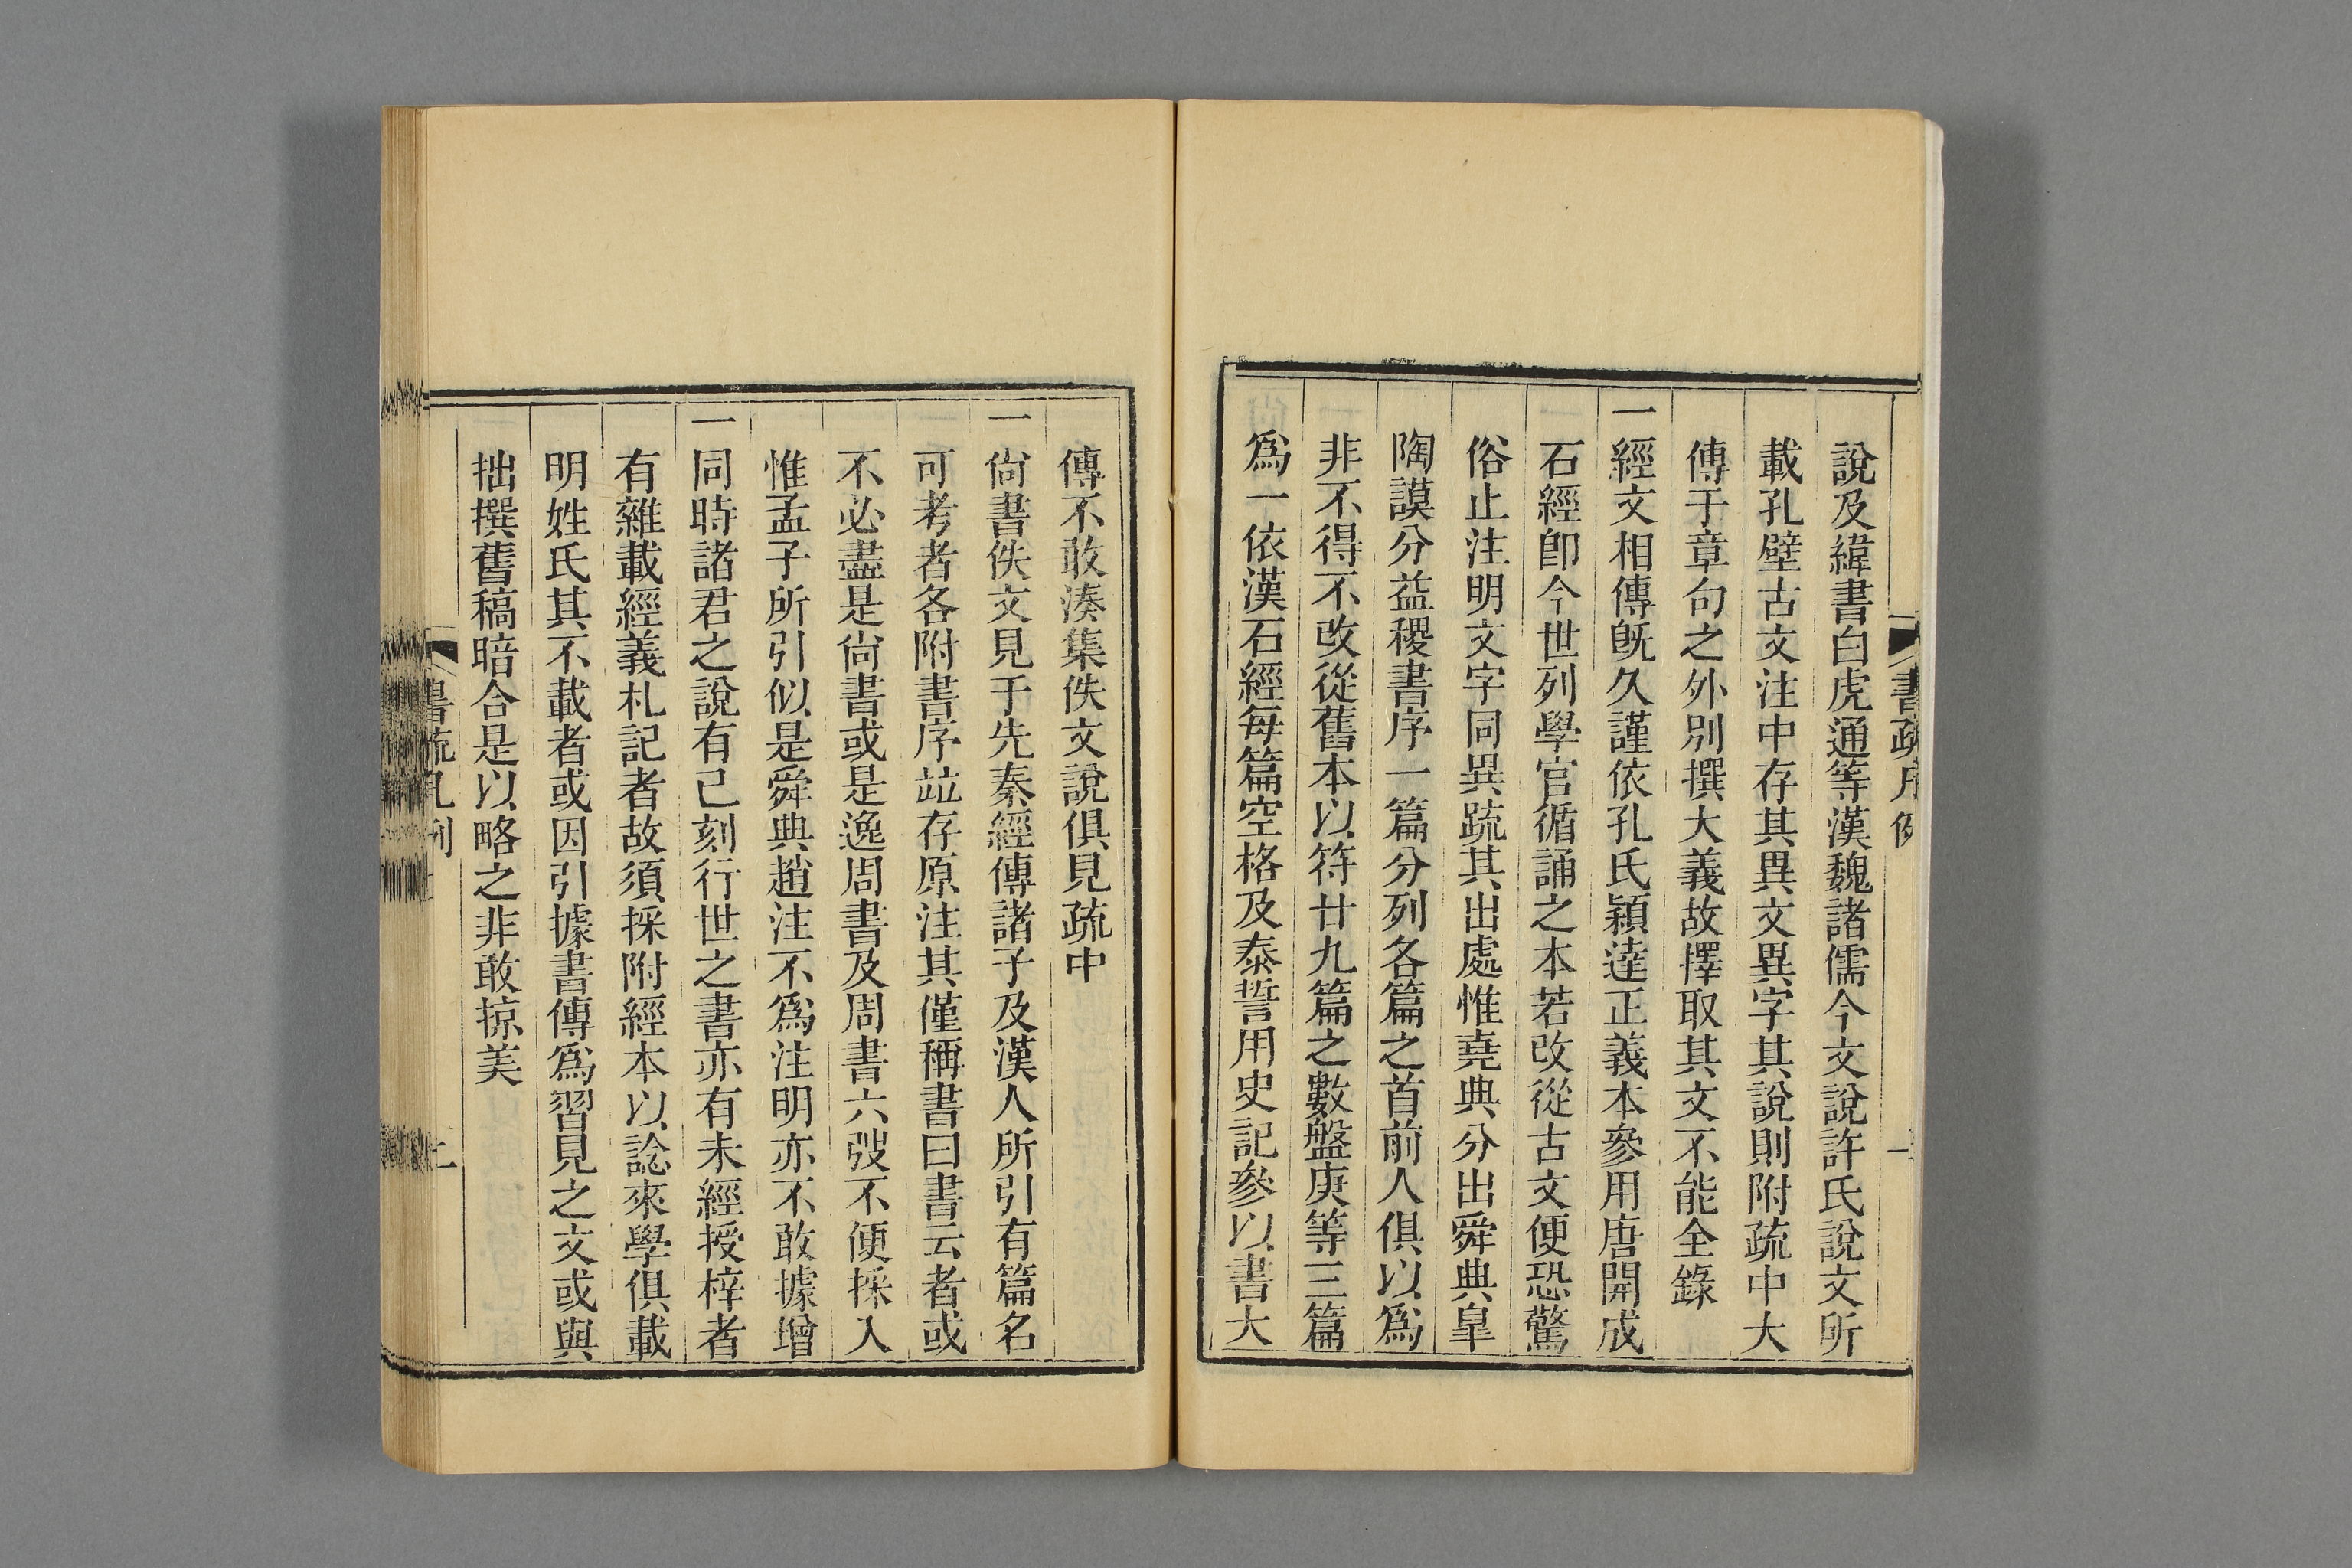 說及緯書白虎通等漢魏諸儒今文說許氏說文所
載孔壁古文注中存其異文異字其說則附疏中大
傳于章句之外別撰大義故擇取其文不能全錄
一經文相傳旣久謹依孔氏穎達正義本參用唐開成
石經卽今世列學官循誦之本若改從古文便恐驚
俗止注明文字同異疏其出處惟堯典分出舜典臯
陶謨分益稷書序一篇分列各篇之首前人俱以爲
非不得不改從舊本以符廿九篇之數盤庚等三篇
爲一依漢石經每篇空格及泰誓用史記參以書大
傳不敢湊集佚文說俱見疏中
一尙書佚文見于先秦經傳諸子及漢人所引有篇名
可考者各附書序竝存原注其僅稱書曰書云者或
不必盡是尙書或是逸周書及周書六弢不便採入
惟孟子所引似是舜典趙注不爲注明亦不敢據增
一同時諸君之說有已刻行世之書亦有未經授梓者
有雜載經義札記者故須採附經本以諗來學俱載
明姓氏其不載者或因引據書傳爲習見之文或與
拙撰舊稿暗合是以略之非敢掠美